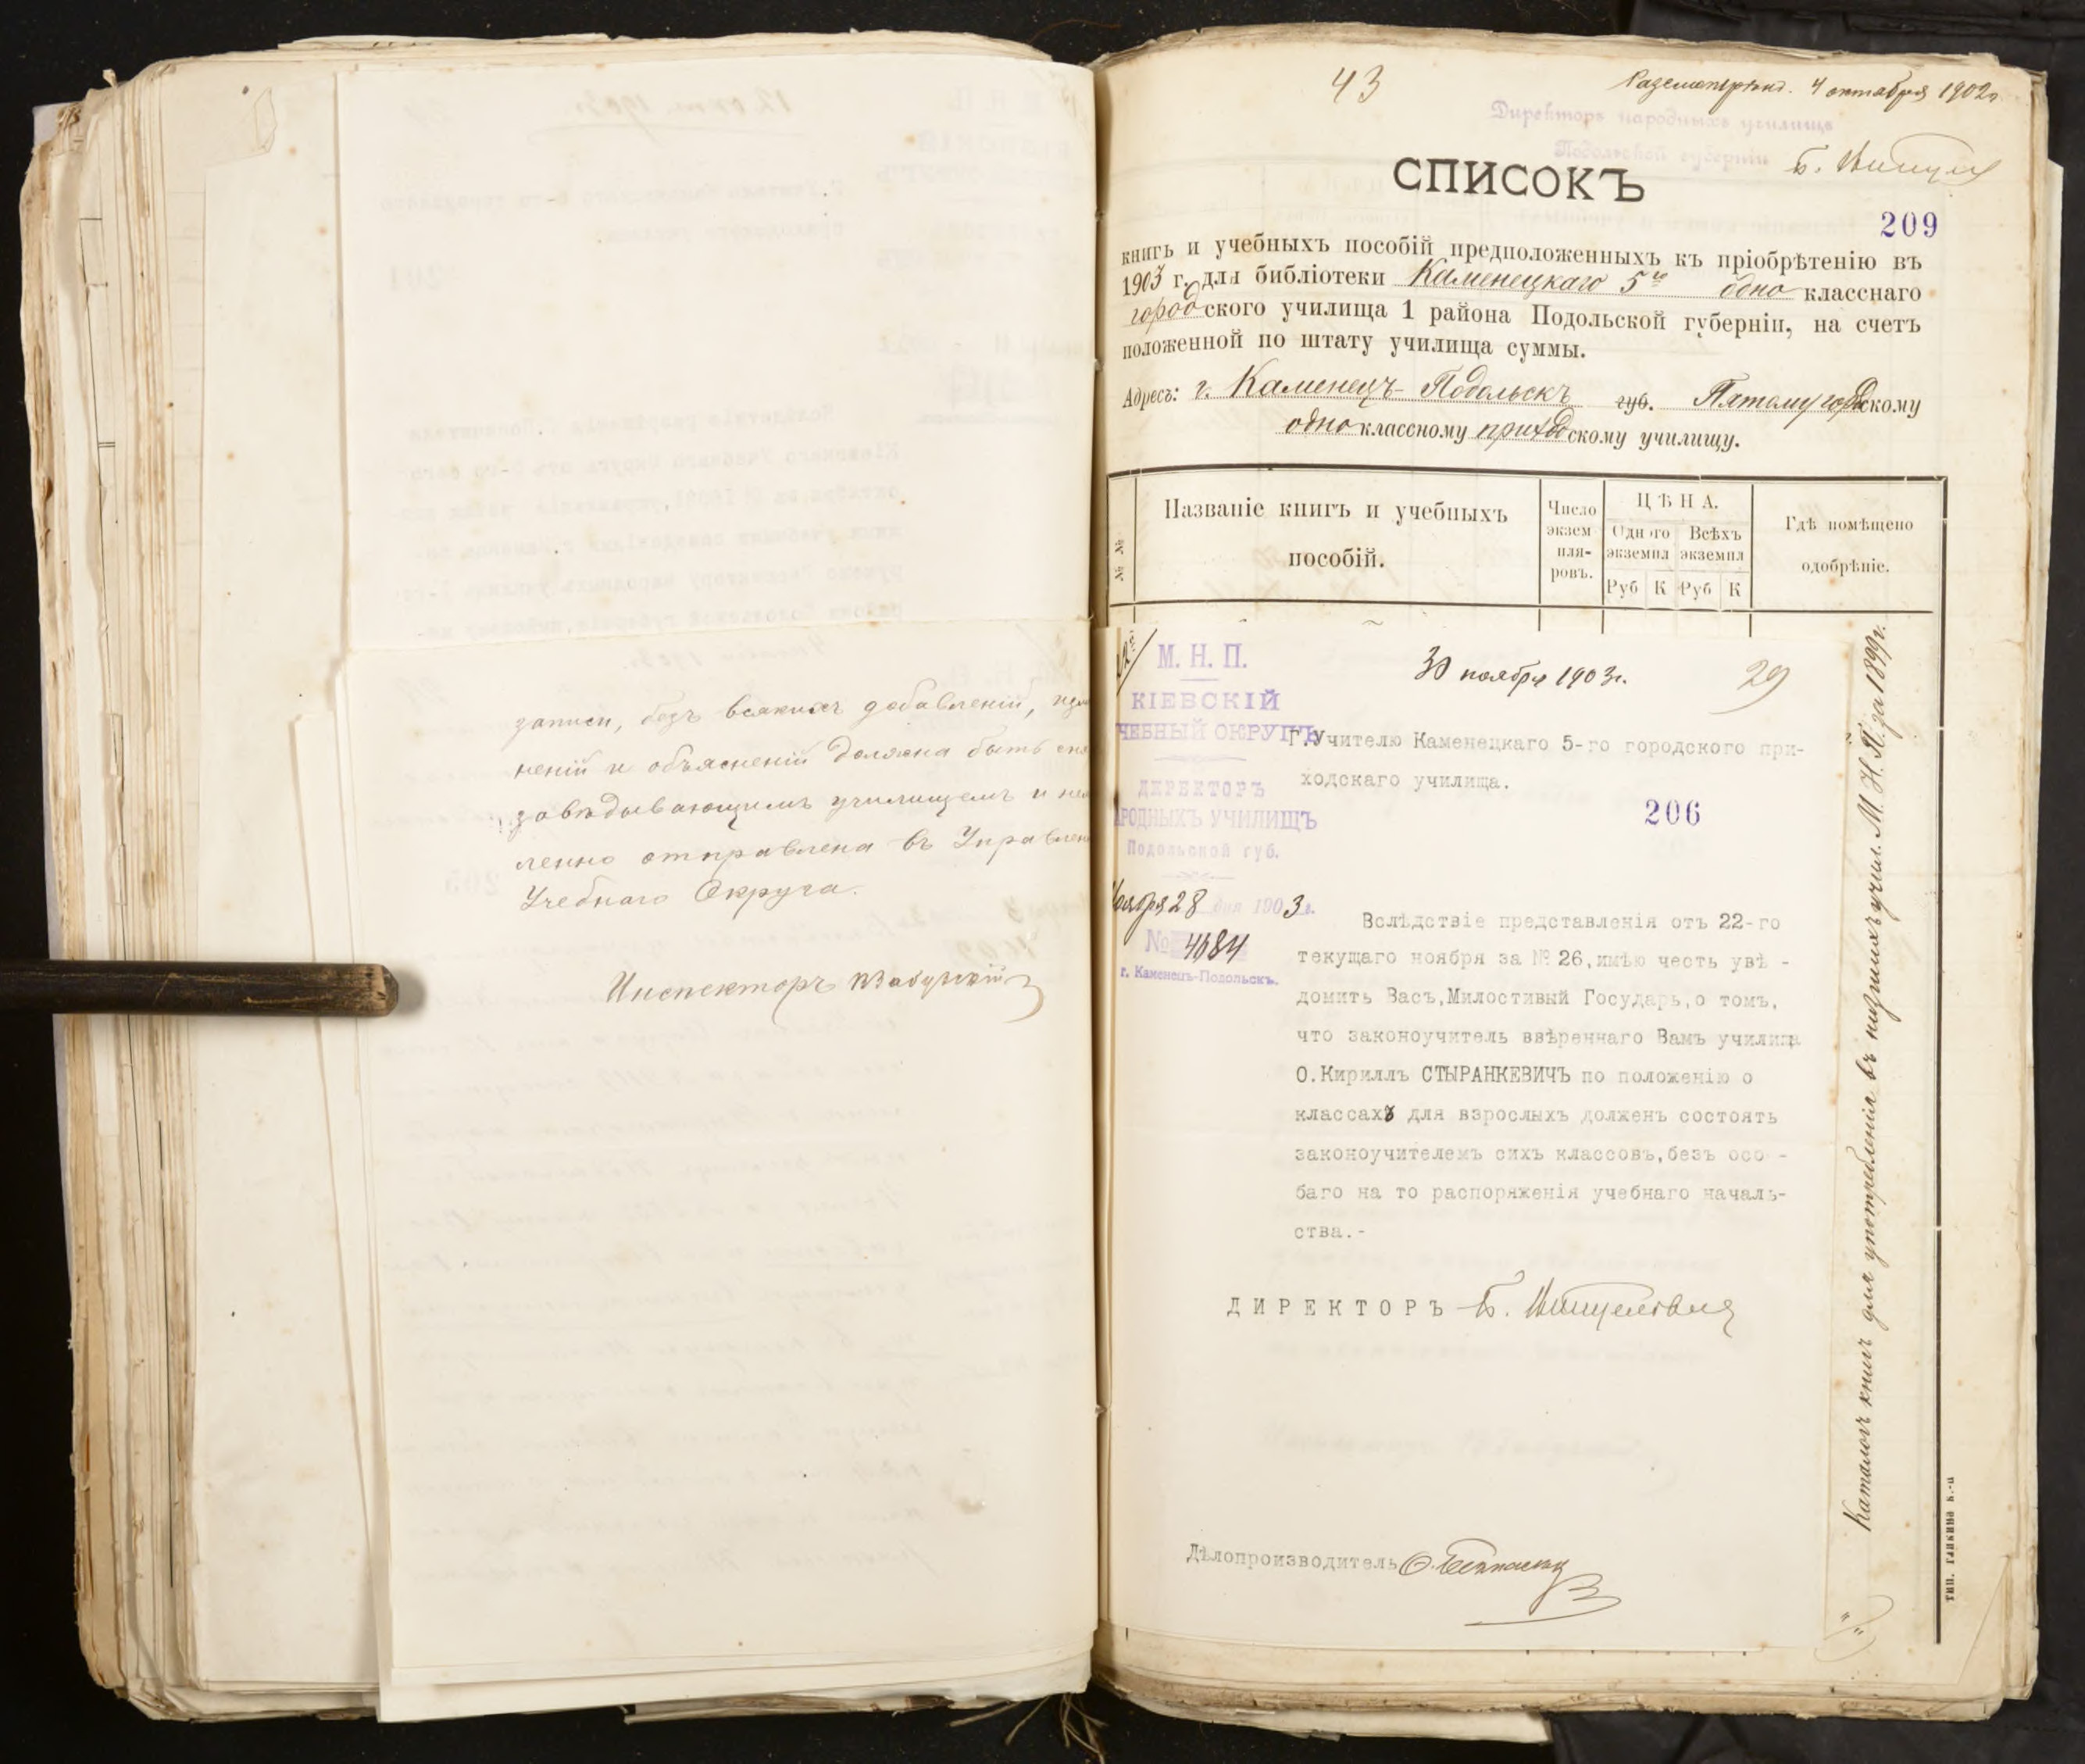 записи, безъ всякихъ добавленій, изм
неній и объясненій должна быть сня
завѣдывающимъ училищемъ и нем
ленно отправлена въ Управлен
Учебнаго Округа.
Инспекторъ
43
Разсмотрѣно. 4 октября 1902г.
Директоръ народныхъ училищъ
Подольской губерніи
СПИСОКЪ
209
книгъ и учебныхъ пособій предположенныхъ къ пріобрѣтенію въ
1903 г. для библіотеки Каменецкаго 5го одно класснаго
городского училища 1 района Подольской губерніи, на счетъ
положенной по штату училища суммы.
Адресъ: г. Каменецъ-Подольскъ губ. Пятому городскому
одноклассному приходскому училищу.
№ №
Названіе книгъ и учебныхъ
пособій.
Число
экзем
пля-
ровъ.
ЦѢНА.
Одного
экземпл
Всѣхъ
экземпл
Руб К Руб К
Гдѣ помѣщено
одобрѣніе.
М. Н. П.
КІЕВСКІЙ
ЧЕБНЫЙ ОКРУГЪ
ДИРЕКТОРЪ
АРОДНЫХЪ УЧИЛИЩЪ
Подольской губ.
Ноября 28 дня 1903 г.
№ 4684
г. Каменецъ-Подольскъ.
30 ноября 1903г.
29
Г. Учителю Каменецкаго 5-го городского при-
ходскаго училища.
206
Вслѣдствіе представленія отъ 22-го
текущаго ноября за № 26, имѣю честь увѣ -
домить Васъ, Милостивый Государь, о томъ,
что законоучитель ввѣреннаго Вамъ училища
О.Кириллъ СТЫРАНКЕВИЧЪ по положенію о
классахъ для взрослыхъ долженъ состоять
законоучителемъ сихъ классовъ, безъ осо -
баго на то распоряженія учебнаго началь-
ства.-
ДИРЕКТОРЪ
Дѣлопроизводитель
Каталогъ книгъ для употребленія въ низшихъ училищ. М. Н. П. за 1899г.
тип. Ганкина К.-П